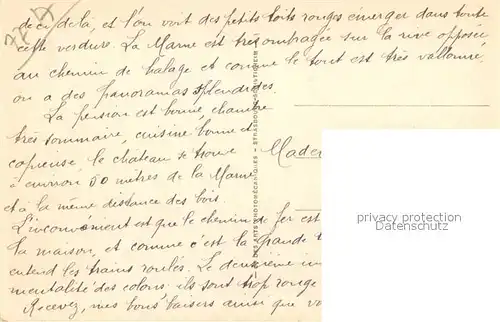 deci delà, et l'on voit des petits toits rouges émerger dans toute
cette verdure. La Marne est très ombragée sur la rive opposée
au chemin de halage et comme le tout est très vallonné
on a des panoramas splendides.
La pension est bonne, chambre
très sommaire, cuisine bonne et
copieuse le chateau se trouve
à environ 50 mètres de la Marne
et à la même distance des bois.
L'inconvénient est que le chemin de fer est
la maison, et comme c'est la Grande
entend les trains roulés. Le deuxième in
mentalité des colons ils sont trop rouge
Recevez, mes bons baisers ainsi que vo
Made
privacy protection
Datenschutz
DES ARTS PHOTOMÉCANIQUES - STRASBOURG-SCHILTIGHEIM